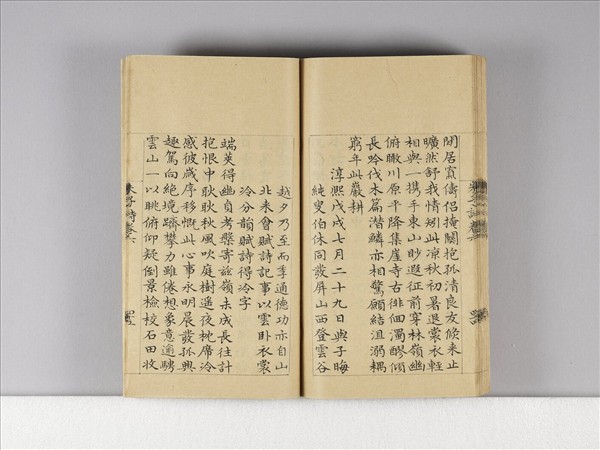 閒居寡儔侶掩關抱孤清良友倏来止
曠然舒我情矧此涼秋初暑退裳衣輕
相與一携手東山眇遐征前穿林嶺幽
俯瞰川原平降集崖寺古徘徊濁醪傾
長吟伐木篇潛鱗亦相驚願結沮溺耦
窮年此巖耕
淳熙戊戌七月二十九日與子晦
純叟伯休同發屏山西登雲谷
越夕乃至而季通德功亦自山
北来會賦詩記事以雲卧衣裳
冷分韻賦詩得冷字
端英得幽貞考槃寄兹嶺未成長往計
抱恨中耿耿秋風吹庭樹遥夜枕席冷
感彼歲序移慨此心事永明晨發孤興
趣駕向絶境躋攀力雖倦想象意逾騁
雲山一以眺俯仰疑倒景檢校石田收